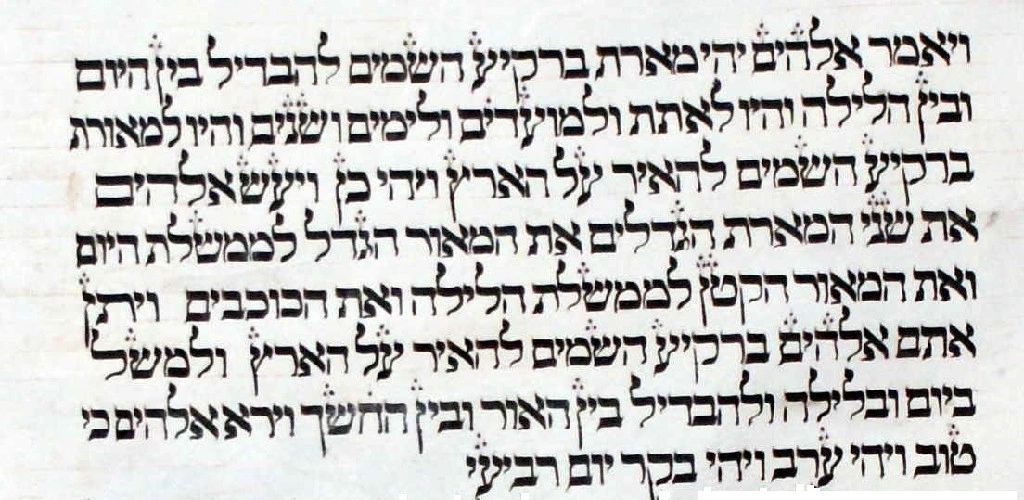 ויאמר אלהים יהי מארת ברקיע השמים להבדיל בין היום
ובין הלילה והיו לאתת ולמועדים ולימים ושנים והיו למאורת
ברקיע השמים להאיר על הארץ ויהי כן ויעש אלהים
את שני המארת הגדלים את המאור הגדל לממשלת היום
ואת המאור הקטן לממשלת הלילה ואת הכוכבים ויתן
אתם אלהים ברקיע השמים להאיר על הארץ ולמשל
ביום ובלילה ולהבדיל בין האור ובין החשך וירא אלהים כי
טוב ויהי ערב ויהי בקר יום רביעי